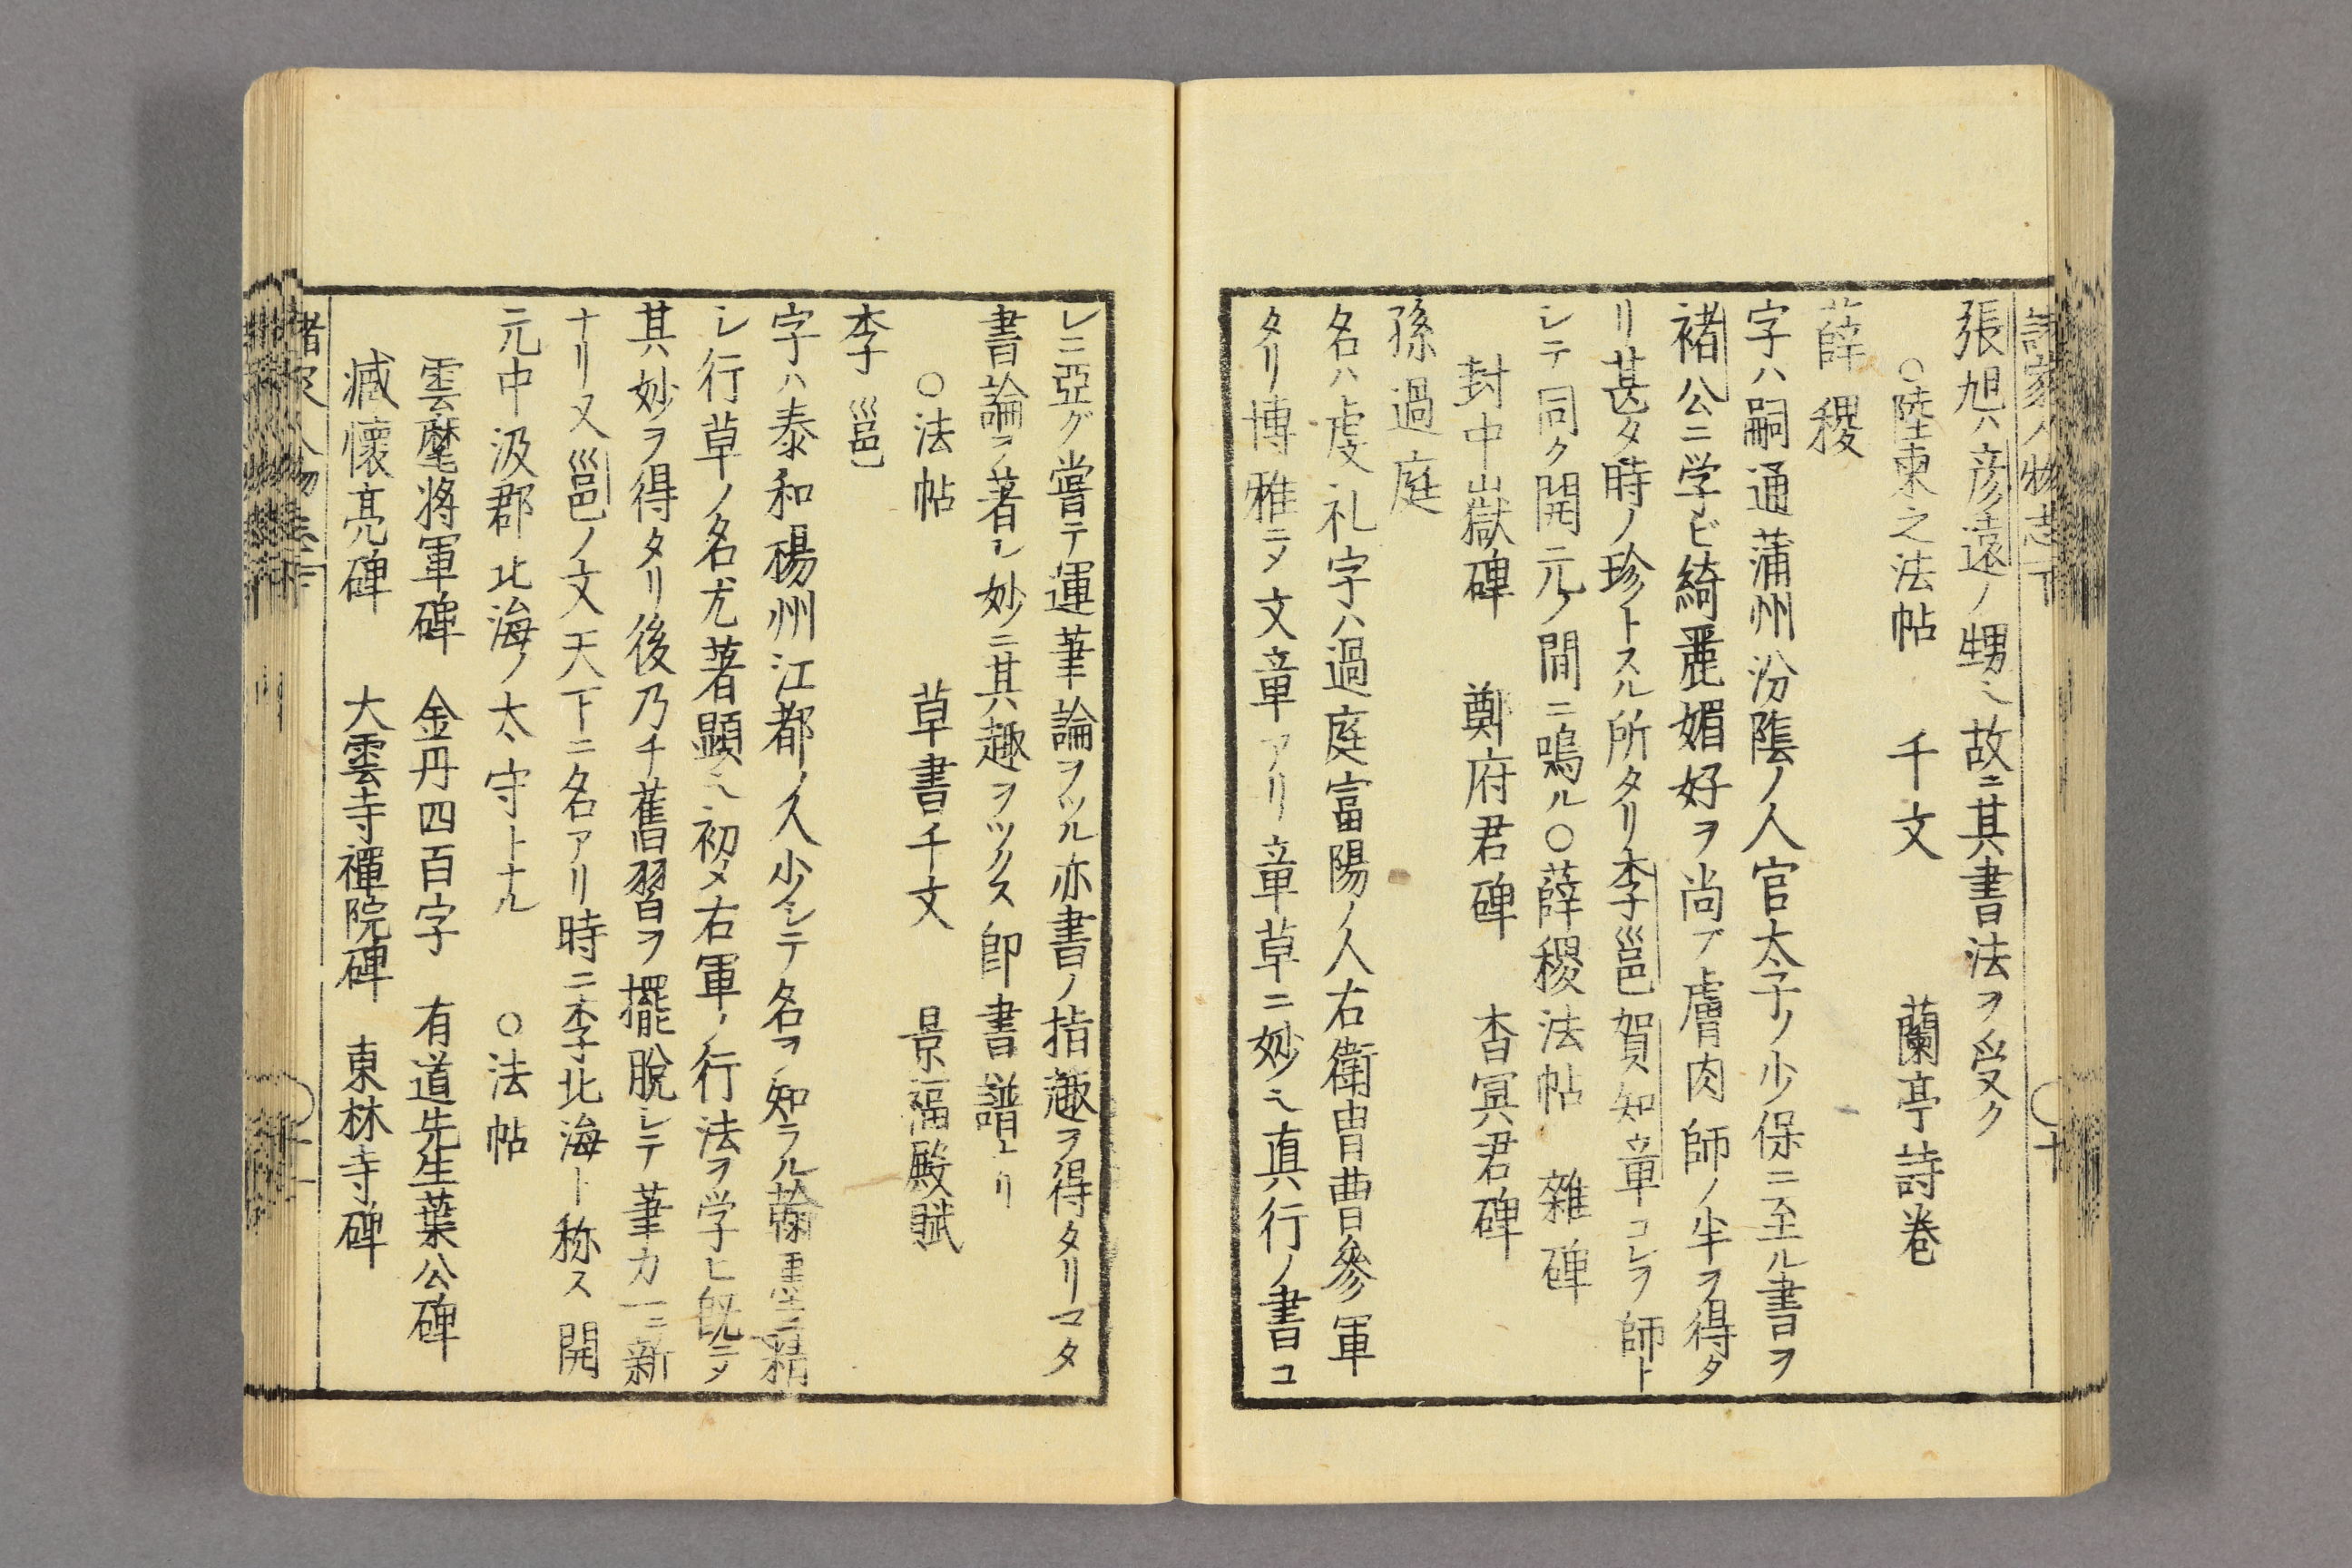 諸家人物志下 〇十
張旭ハ彦遠ノ甥也故ニ其書法ヲ受ク
〇陸柬之法帖 千文 蘭亭詩巻
薛稷
字ハ嗣通蒲州汾隂ノ人官太子ノ少保ニ至ル書ヲ
褚公ニ学ビ綺麗媚好ヲ尚ブ膚肉師ノ半ヲ得タ
リ甚タ時ノ珍トスル所タリ李邕賀知章コレヲ師ト
シテ同ク開元ノ間ニ鳴ル〇薛稷法帖 雜碑
封中嶽碑 鄭府君碑 杳冥君碑
孫過庭
名ハ虔礼字ハ過庭富陽ノ人右衛冑曹參軍
タリ博雅ニメ文章アリ章草ニ妙也真行ノ書コ
レニ亞グ嘗テ運筆論ヲツル亦書ノ指趣ヲ得タリマタ
書論ヲ著シ妙ニ其趣ヲツクス即書譜ヒリ
〇法帖 草書千文 景福殿賦
李邕
字ハ泰和楊州江都ノ人少シテ名ヲ知ラル翰墨ニ精
シ行草ノ名尤著顕也初メ右軍ノ行法ヲ学ヒ既ニメ
其妙ヲ得タリ後乃チ舊習ヲ擺脱シテ筆力一ニ新
ナリ又邕ノ文天下ニ名アリ時ニ李北海ト称ス開
元中汲郡北海ノ太守トナル 〇法帖
雲麾将軍碑 金丹四百字 有道先生葉公碑
臧懷亮碑 大雲寺禪院碑 東林寺碑
諸家人物志下 〇十一